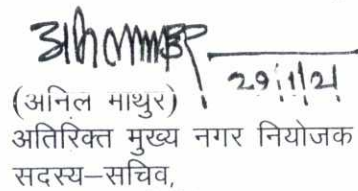 29/1/21
(अनिल माथुर)
अतिरिक्त मुख्य नगर नियोजक
सदस्य–सचिव,